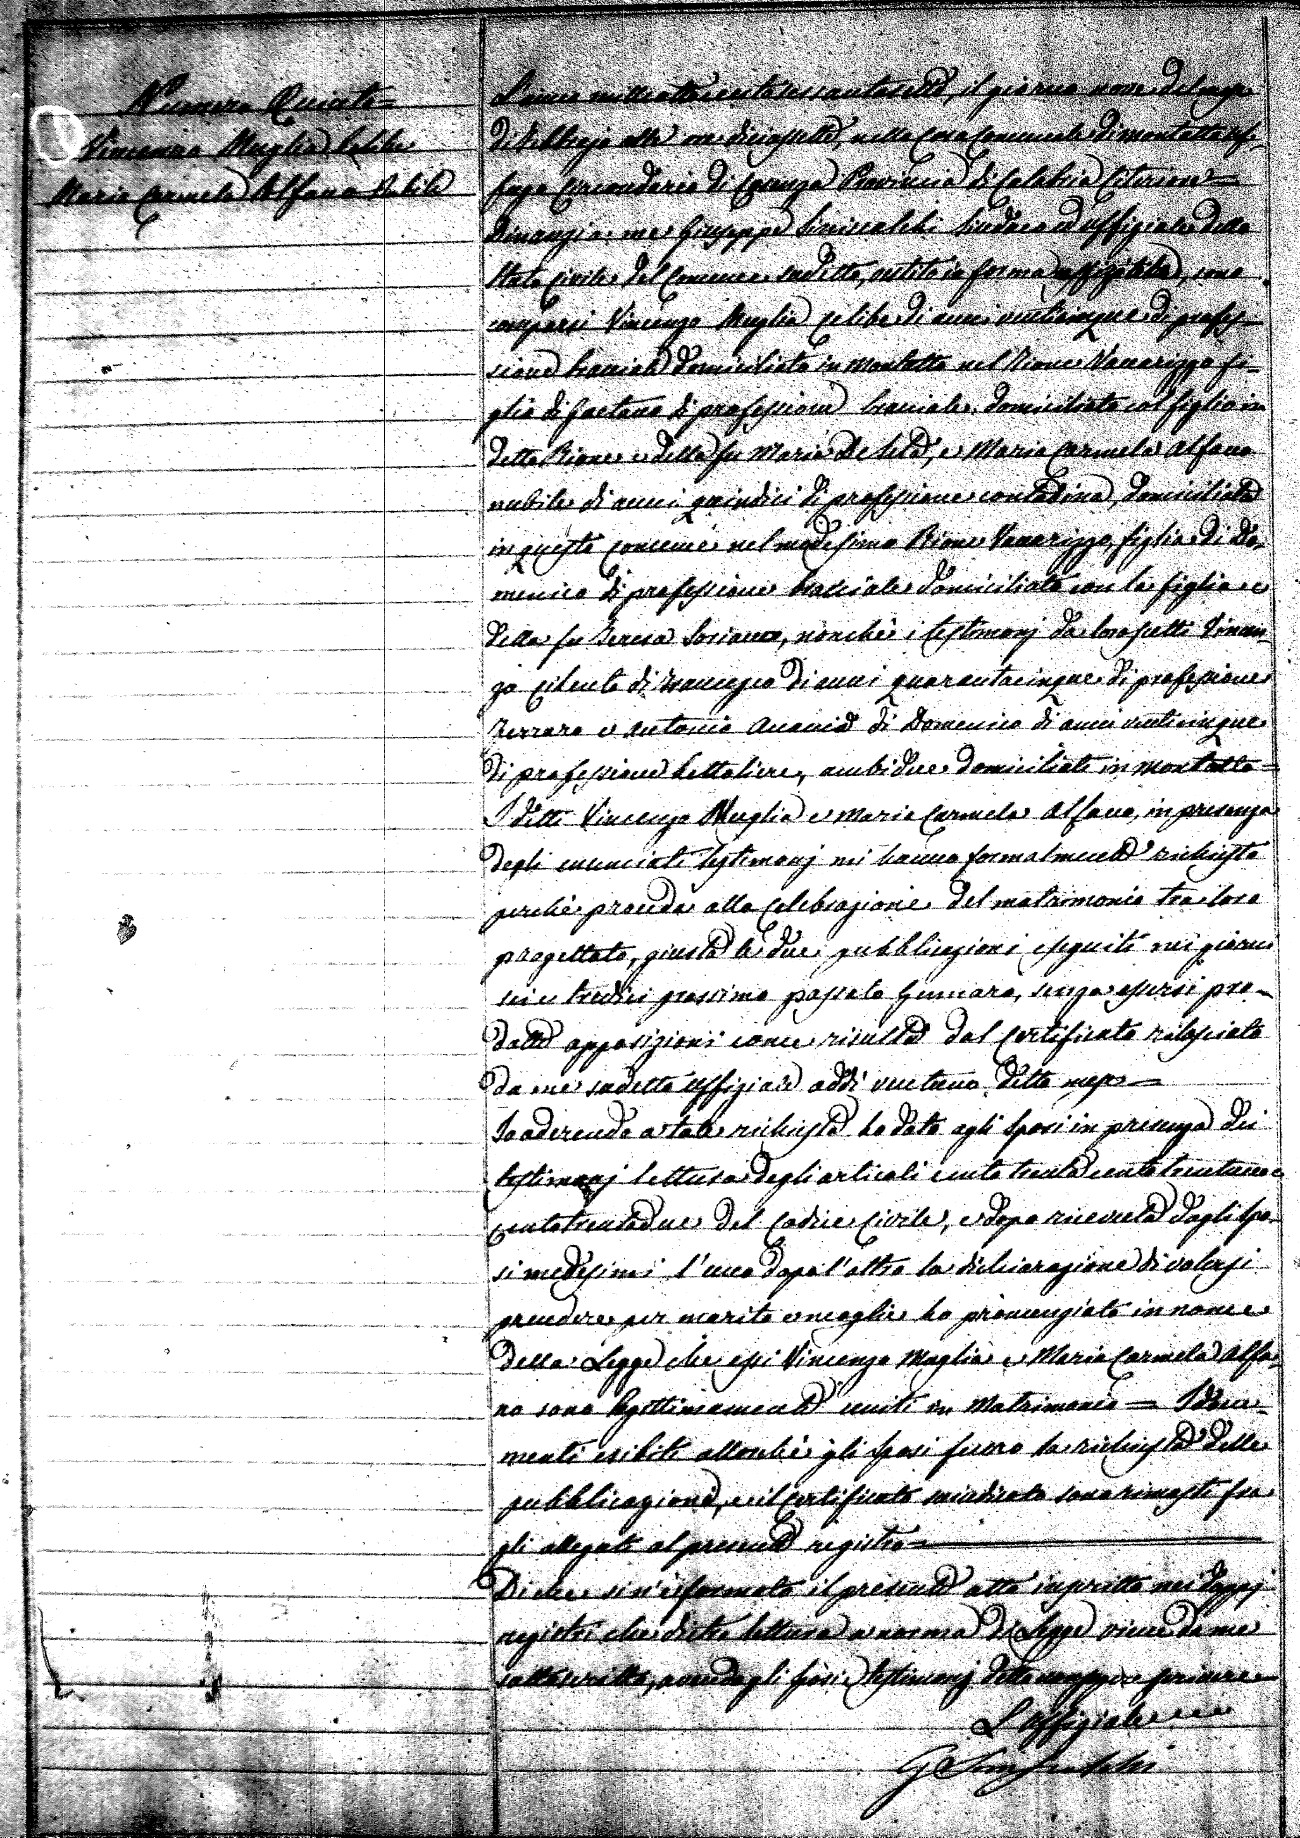 Numero Quinto =
Vincenzo Muglia Celibe
Maria Carmela Alfano Nubile
L'anno milleottocentosessantasette, il giorno nove del mese
di Febbrajo alle ore diciassette, nella Casa Comunale di Montalto Uf-
fugo Circondario di Cosenza Provincia di Calabria Citeriore =
Dinanzi a me Giuseppe Siniscalchi Sindaco ed Uffiziale dello
Stato Civile del Comune sudetto, vestito in forma uffiziale, sono
comparsi Vincenzo Muglia celibe di anni venticinque di profes-
sione bracciale domiciliato in Montalto nel Rione Vaccarizzo fi-
glio di Gaetano di professione bracciale, domiciliato col figlio in
detto Rione e della fu Maria De Seta, e Maria Carmela Alfano
nubile di anni quindici di professione contadina, domiciliata
in questo Comune nel medesimo Rione Vaccarizzo, figlia di Do-
menico di professione bracciale domiciliato con la figlia e
della fu Teresa Soriano, nonchè i testimonj da loro scelti Vincen-
zo Cilento di Francesco di anni quarantacinque di professione
Ferraro e Antonio di Domenico di anni venticinque
di professione bettoliere, ambidue domiciliati in Montalto =
I detti Vincenzo Muglia e Maria Carmela Alfano, in presenza
degli enunciati testimonj mi hanno formalmente richiesto
perchè proceda alla celebrazione del matrimonio tra loro
progettato, giusta le due pubblicazioni eseguite nei giorni
sei e tredici prossimo passato Gennaro, senza essersi pro-
dotte opposizioni come risulta dal Certificato rilasciato
da me sudetto Uffiziale addì ventuno detto mese =
Io aderendo a tale richiesta ho dato agli Sposi in presenza dei
testimonj lettura degli articoli cento trenta cento trentuno e
cento trentadue del Codice Civile, e dopo ricevuta dagli Spo-
si medesimi l'uno dopo l'altro la dichiarazione di volersi
prendere per marito e moglie ho pronunziato in nome
della Legge che essi Vincenzo Muglia e Maria Carmela Alfa-
no sono legittimamente uniti in Matrimonio = I docu-
menti esibiti allorchè gli Sposi fecero la richiesta delle
pubblicazioni, e il Certificato suindicato sono rimasti fra
gli allegati al presente registro =
Di che si n'è formato il presente atto inscritto nei doppj
registri che dietro lettura a norma di Legge viene da me
sottoscritto, avendo gli Sposi e testimonj detto non sapere firmare =
L'Uffiziale
G Siniscalchi